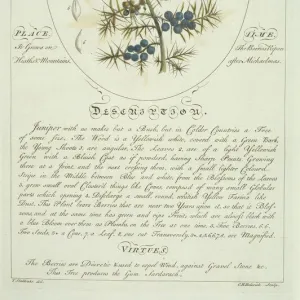 PLACE.
It Grows on
Heaths & Mountains.
TIME.
The Berries Ripen
after Michaelmas.
DESCRIPTION.
Juniper with us makes but a Shrub, but in Colder Countries a Tree
of some Size. The Wood is a Yellowish white, coverd with a Grem Bark
the Young Shoots 1, are angular, The Leaves 2, are of a light Yellowish
Green with a Bluish Cast as if powdered, having Sharp Points Growing
three at a Joint, and the next crossing them, with a Small lighter Colourd
Stripe in the Middle between Blue and white, from the
3, grow small oval Chaived things like Cones, composed of many small Globular
parts which opening 4, Discharge a small round, whitish Yellow Farina like
Dust. This Plant bears Berries that are near two Years upon it, so that it Blos-
soms and at the same time has green and ripe Fruit, which are always black with
a Blue Bloom over them as Plumbs on the Tree at one time, 5, Two Berries, 5, 6,
Two Seeds,
VIRTUES.
The Berries are Diuretic & used to expel Wind, against Gravel Stone &c.
This Tree produces the Gum Sandarach.